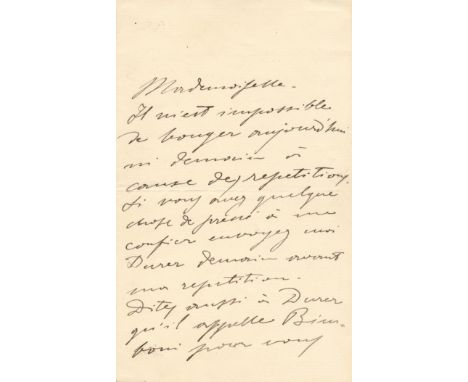 Mademoiselle.
Il m'est impossible
de bouger aujourd'hui
ni demain à
cause des repetitions.
Si vous avez quelque
chose de pressé à me
confier envoyez moi
Durer demain avant
ma repetition.
Dites aussi à Durer
qu'il appelle Bim-
boni pour vous